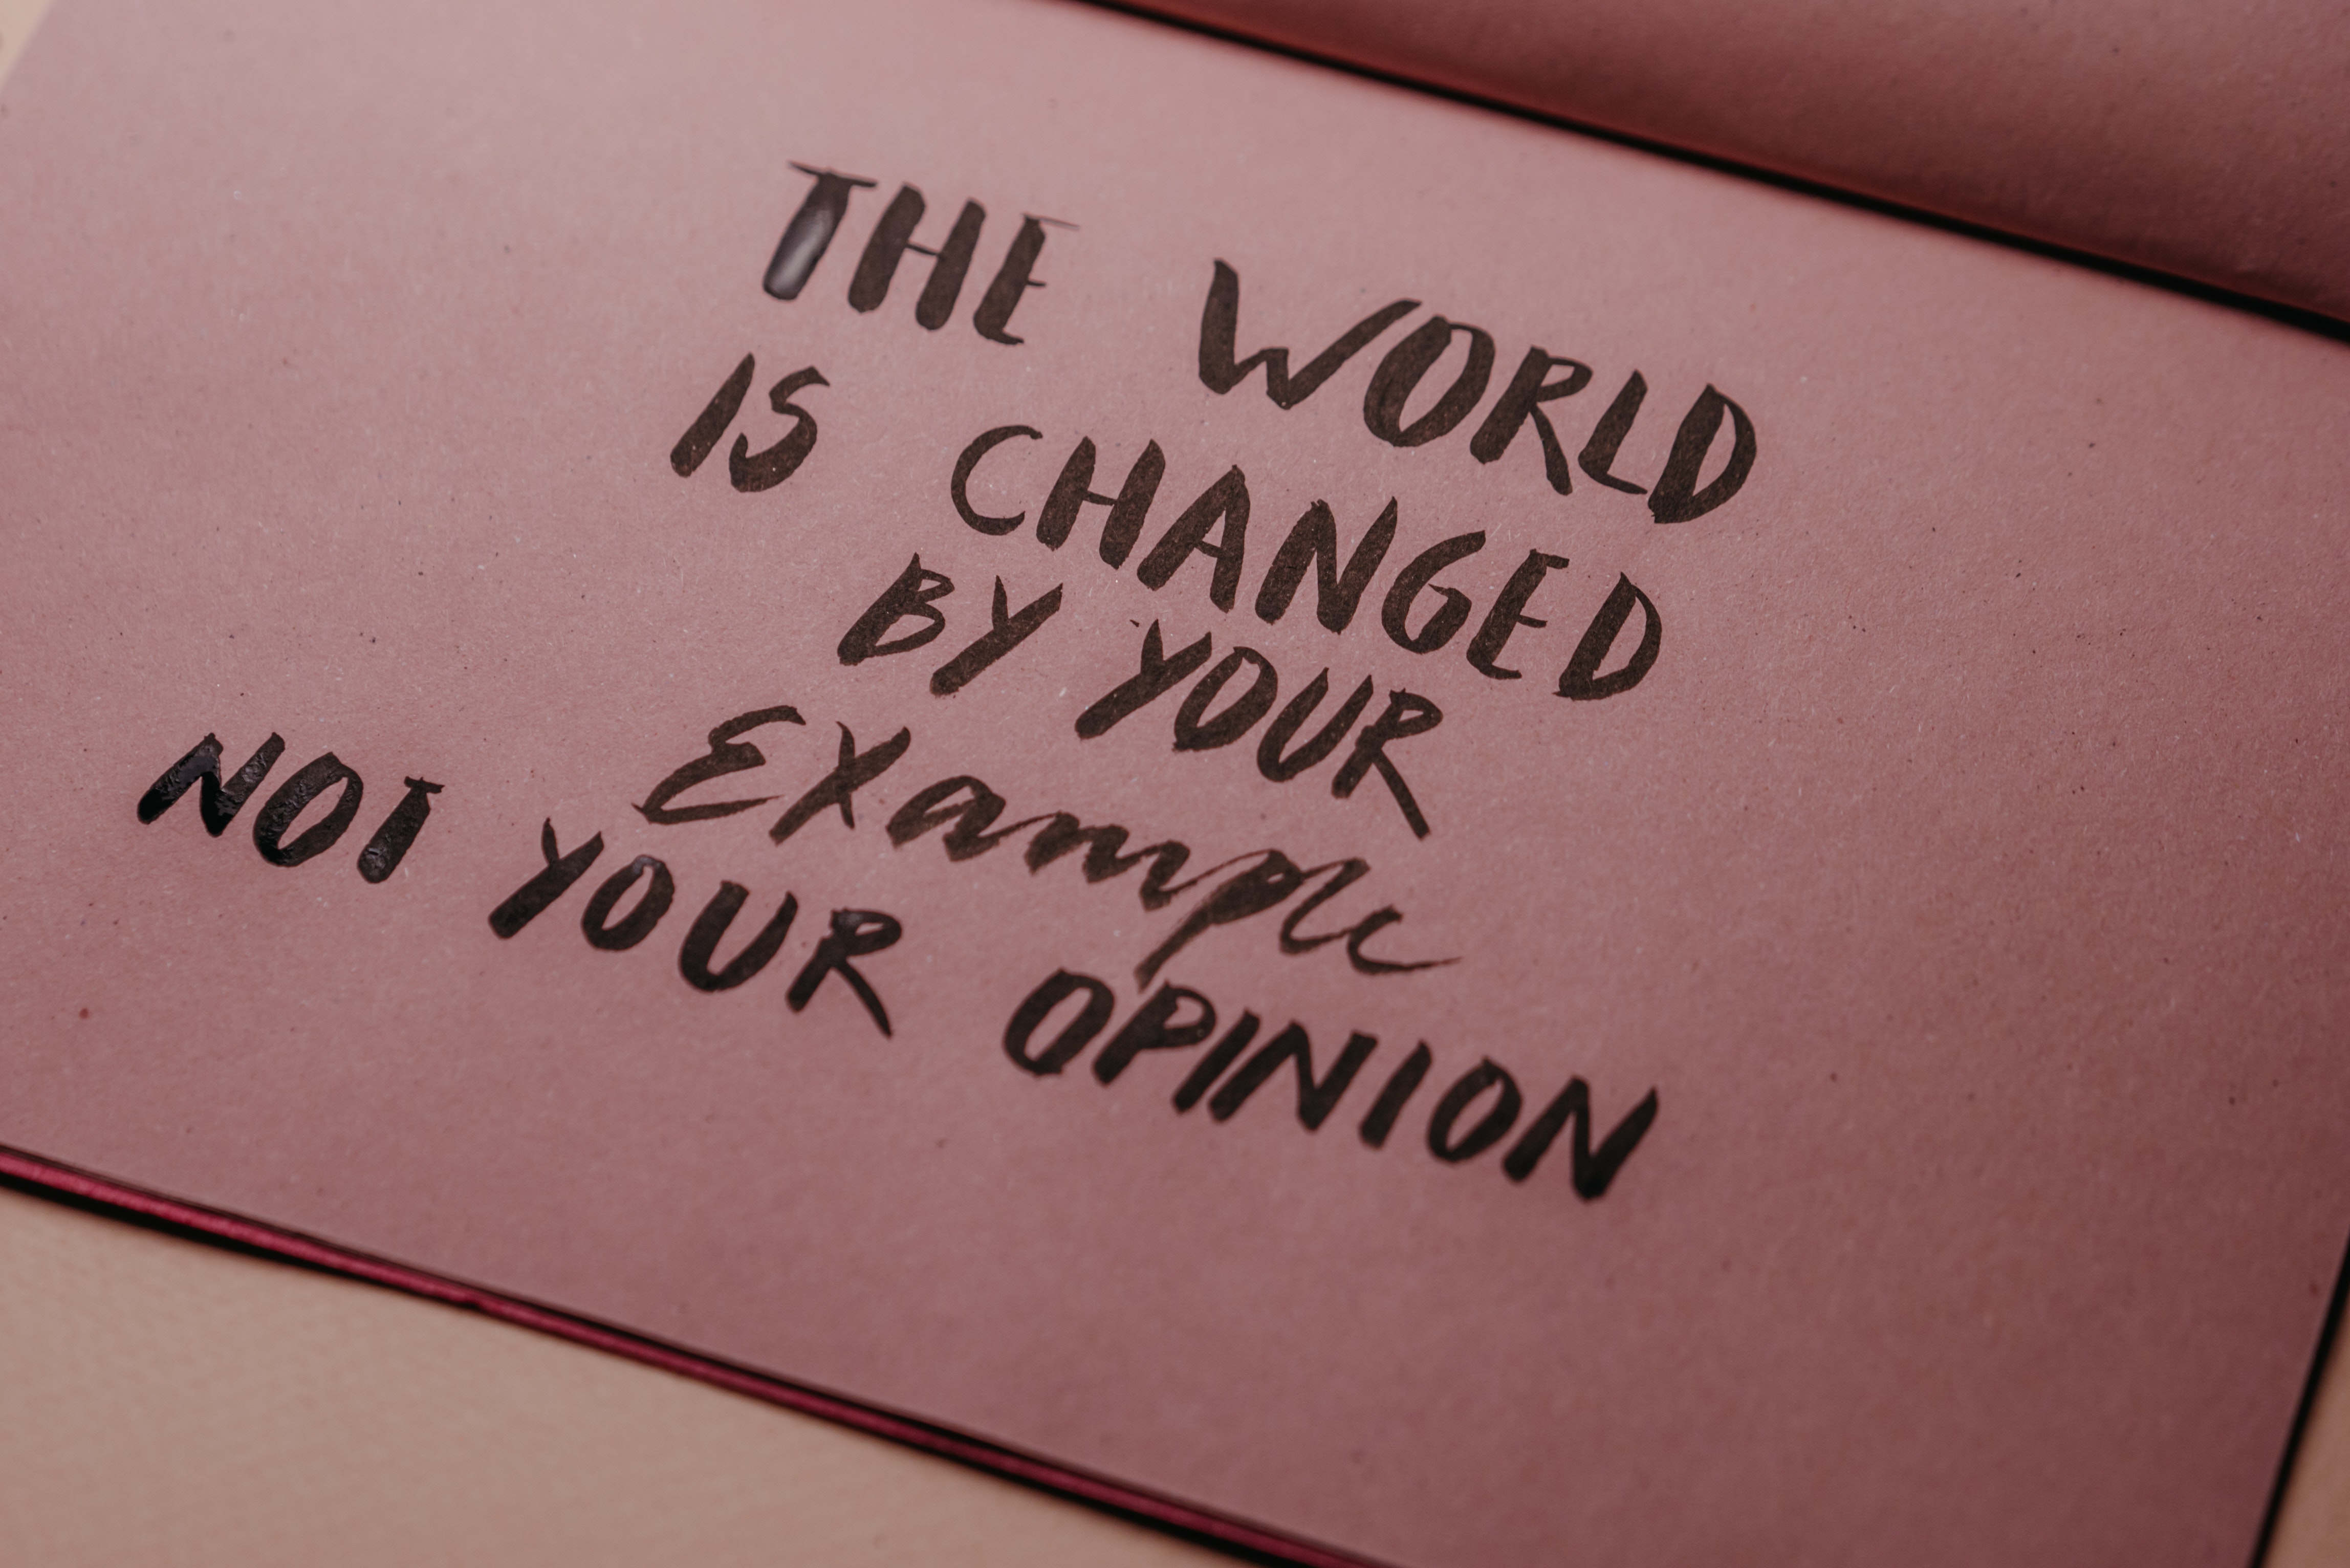 THE WORLD
IS CHANGED
BY YOUR
Example
NOT YOUR OPINION